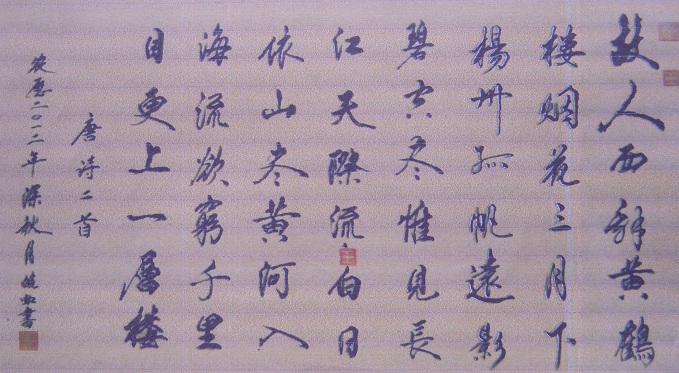 故人西辞黄鹤
楼烟花三月下
杨州孤帆远影
碧空尽惟见长
江天际流白日
依山尽黄河入
海流欲穷千里
目更上一层楼
唐诗二首
二〇一二年深秋月